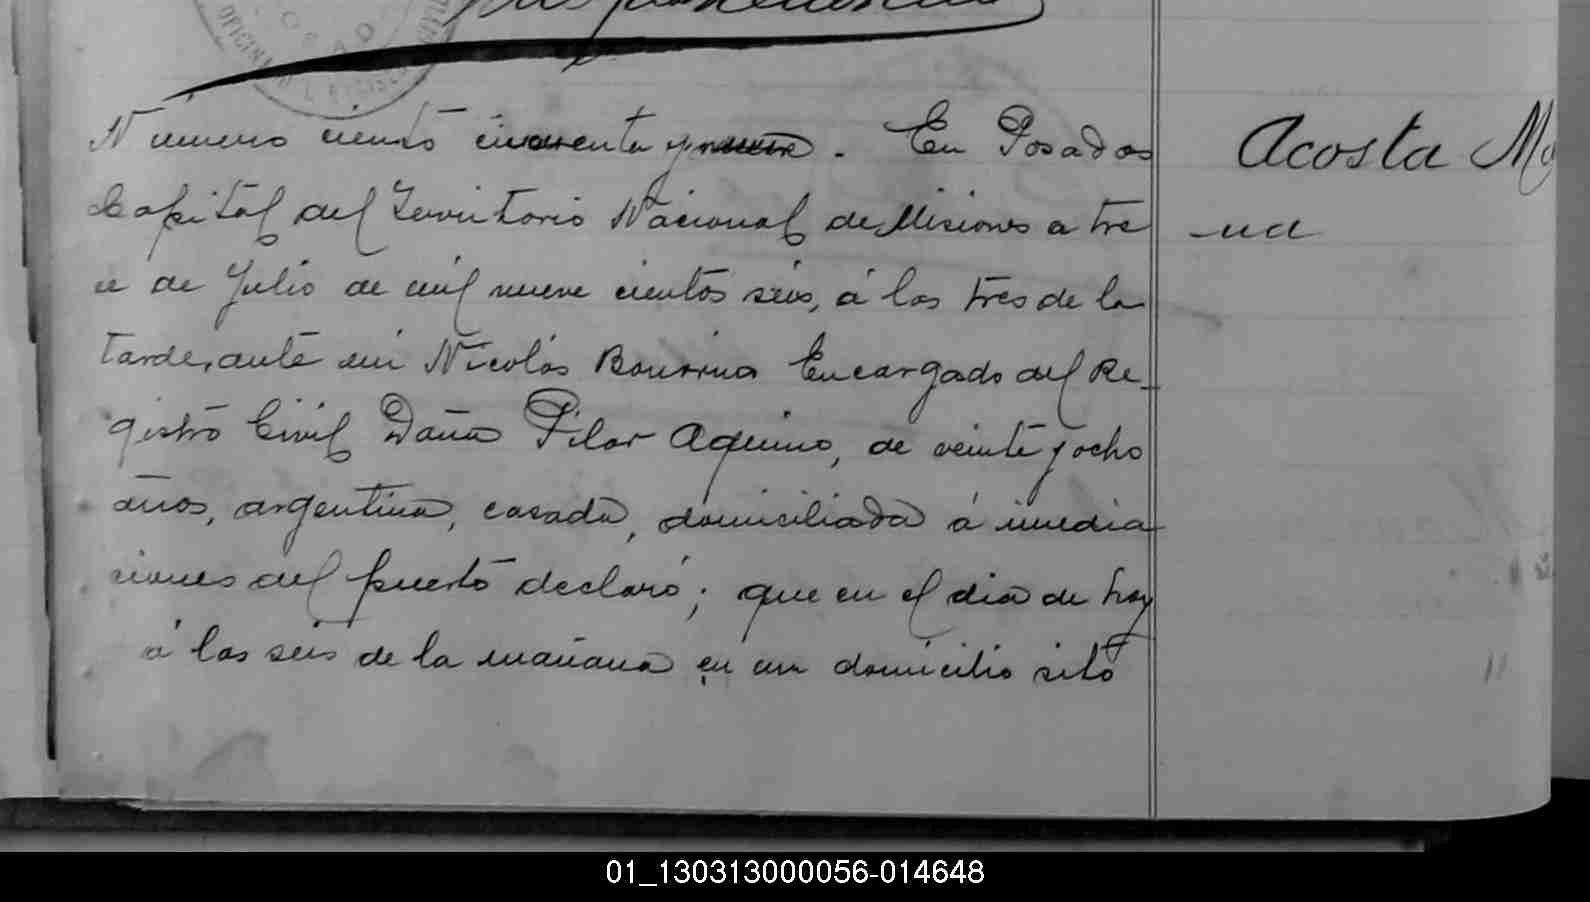 OFICINA
Número ciento cincuenta y nueve. En Posados
Capital del Territorio Nacional de Misiones a tre
ce de Julio de mil nueve cientos seis, á las tres de la
tarde, ante mi Nicolás Bourina Encargado del Re_
gistro Civil Doña Pilar Aquino, de veinte y ocho
años, argentina, casada, domiciliada á inmedia
ciones del puerto declaró; que en el dia de hoy
á las seis de la mañana en un domicilio sito
Acosta Ma
_ua
01_130313000056-014648